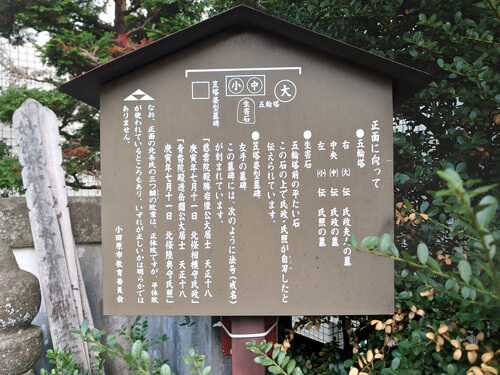 大
中
小
五輪塔
生害石
笠塔婆型墓碑
正面に向って
●五輪塔
右(大)伝 氏政夫人の墓
中央(中)伝 氏政の墓
左(小)伝 氏照の墓
●生害石
五輪塔前の平たい石
この石の上で氏政・氏照が自刃したと
伝えられています。
●笠塔婆型墓碑
左の墓碑
この墓碑には、次のように法号(戒名)
が刻まれています。
「慈雲院殿勝岩傑公大居士 天正十八
庚寅年七月十一日 北條相模守氏政」
「青雲院殿透岳関公大居士 天正十八
庚寅年七月十一日 北條陸奥守氏照」
なお、正面の北条氏の三つ鱗の紋章は、正体紋ですが、平体紋
が使われているところもあり、いずれが正しいかは明らかでは
ありません。
小田原市教育委員会